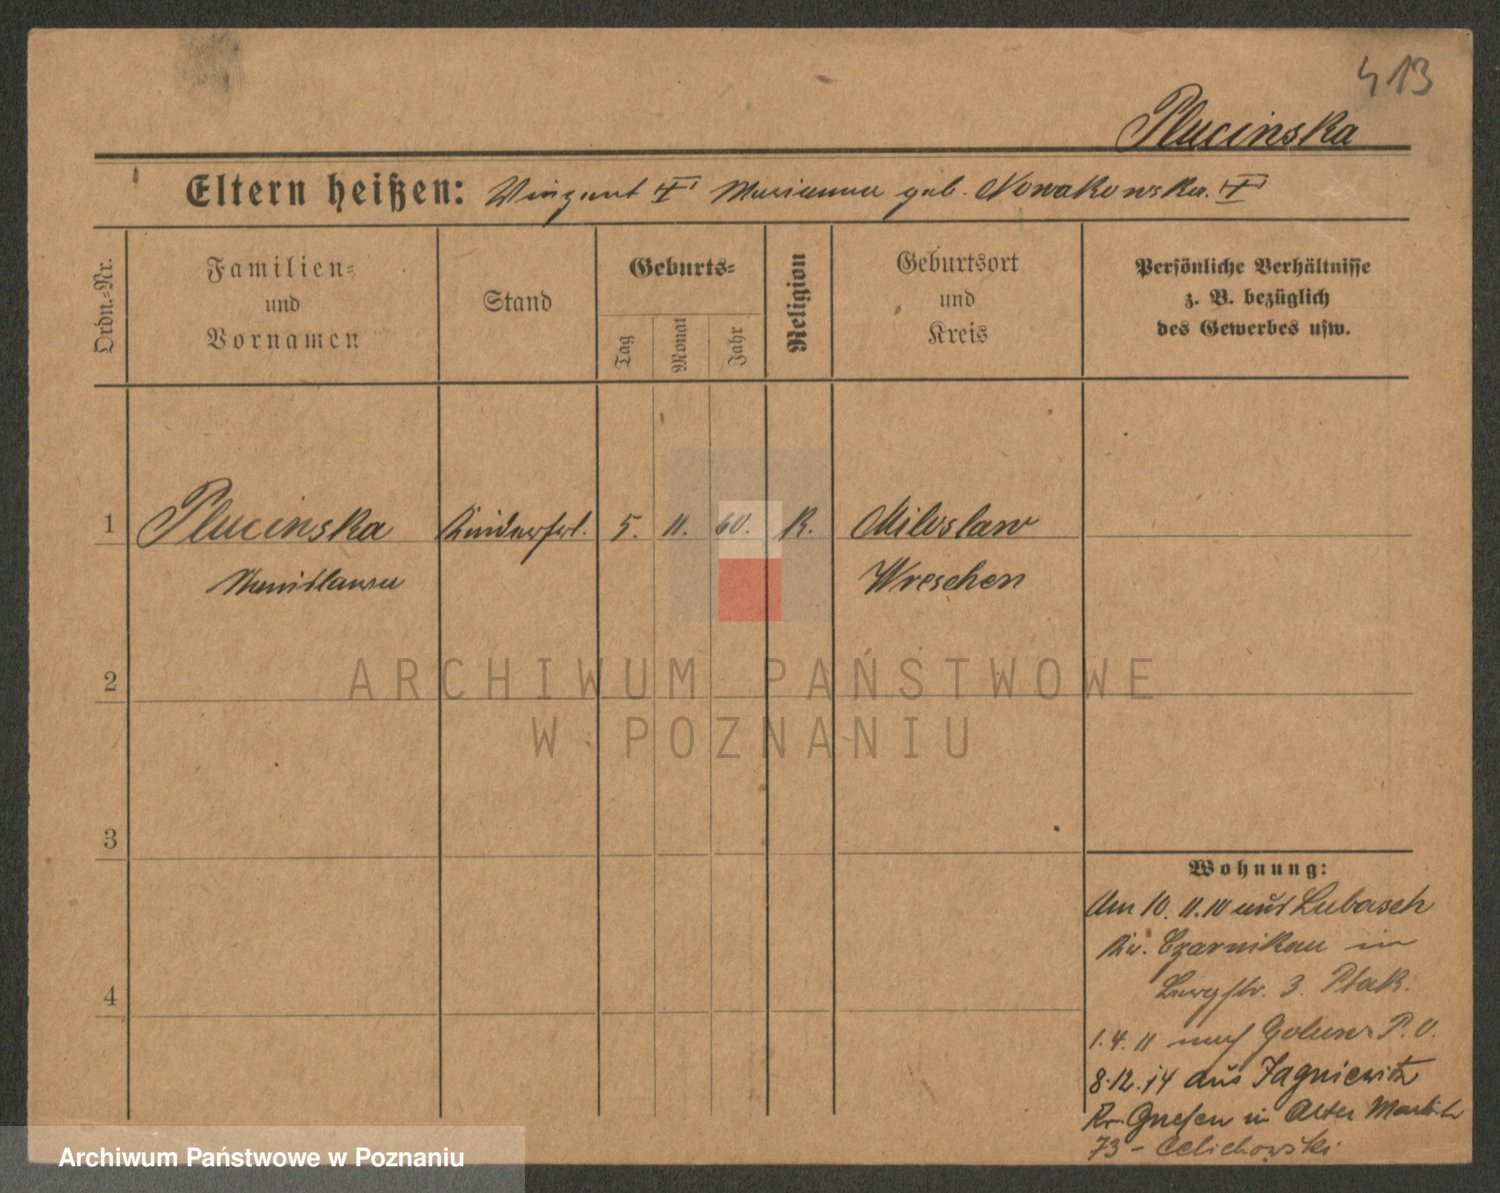 413
Plucinska
Eltern heißen: Vinzent Marianna geb. Nowakowska.
Ordn.-Nr.
Familien-
und
Vornamen
Stand
Geburts-
Tag
Monat
Jahr
Religion
Geburtsort
und
Kreis
Persönliche Verhältnisse
z. B. bezüglich
des Gewerbes usw.
1 Plucinska Kinderfrl. 5. 11. 60. K. Miloslaw
Stanislawa Wreschen
2
ARCHIWUM PAŃSTWOWE
W POZNANIU
3
Wohnung:
Am 10. 11. 10 aus Lubasch
Kr. Czarnikau in
3. Ptak.
4
1. 4. 11 nach P. O.
8.12.14 aus Jagniewitz
Kr. Gnesen in Alter Markt
73 - Celichowski
Archiwum Państwowe w Poznaniu